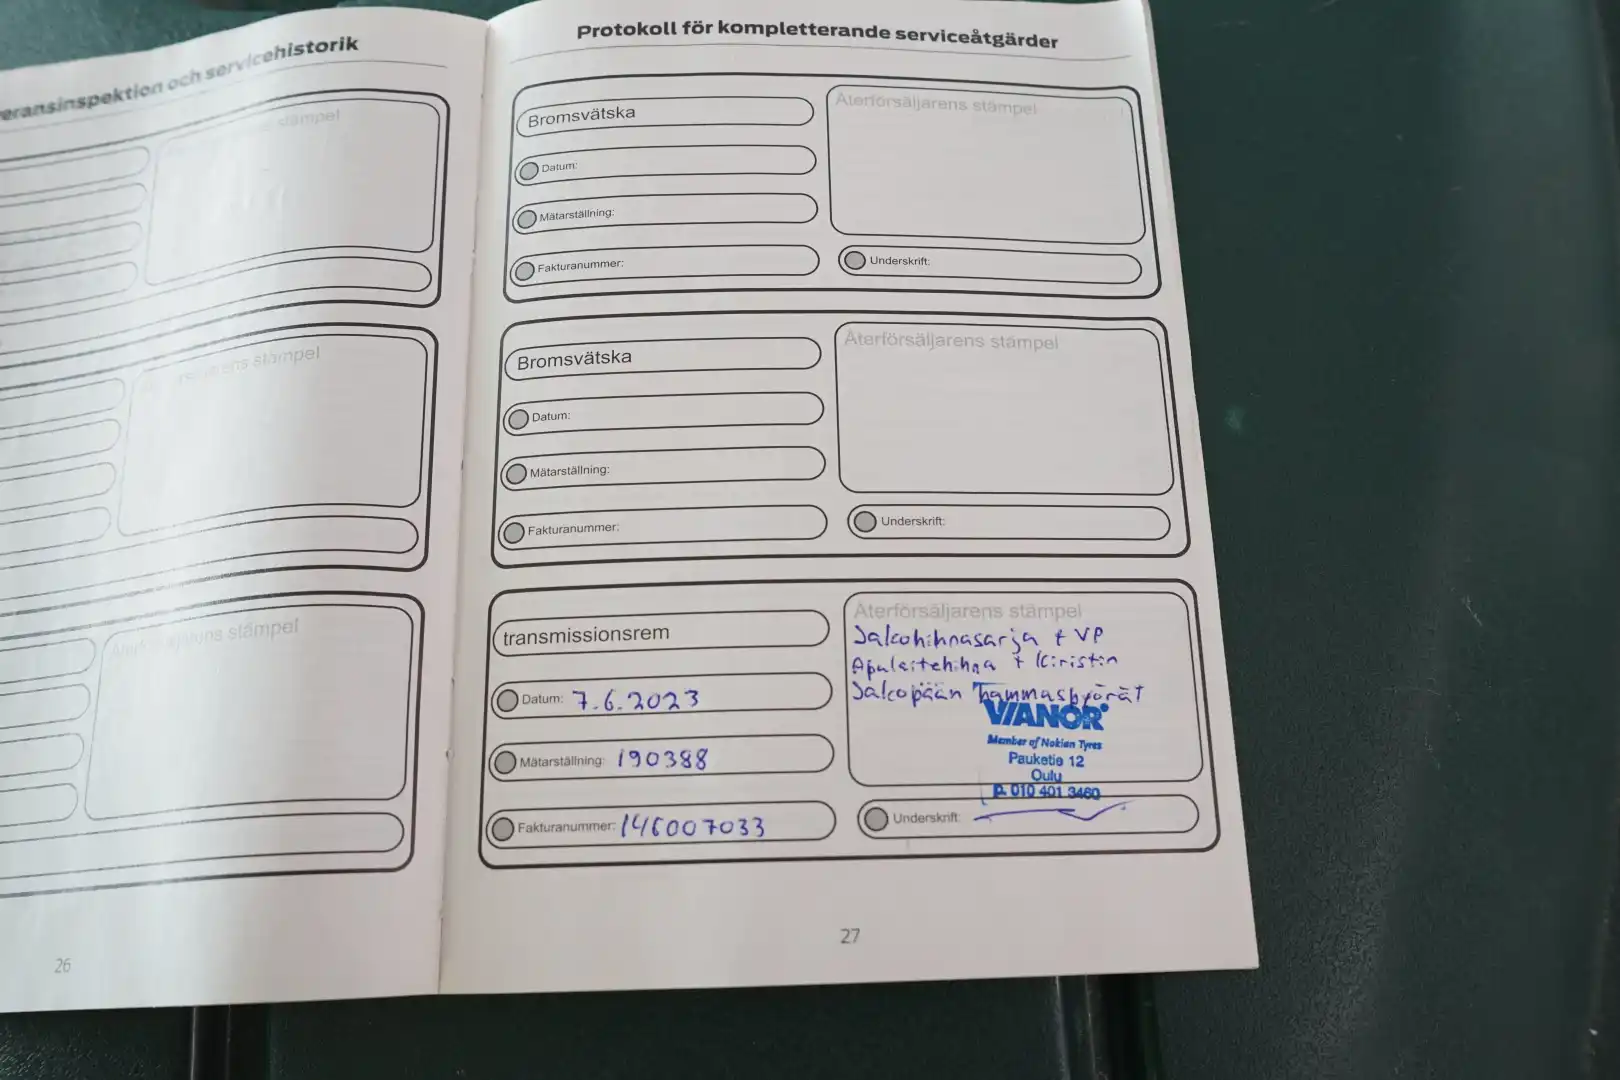 eransinspektion och servicehistorik
stämpel
rens stämpel
stämpel
26
Protokoll för kompletterande serviceåtgärder
Bromsvätska
Återförsäljarens stämpel
Datum:
Mätarställning:
Fakturanummer:
Underskrift:
Bromsvätska
Återförsäljarens stämpel
Datum:
Mätarställning:
Fakturanummer:
Underskrift:
transmissionsrem
Återförsäljarens stämpel
Jakohihnasarja + VP
Apulaitehihna + Kiristin
Jakopään hammaspyörät
Datum: 7.6.2023
Mätarställning: 190388
Fakturanummer: 146007033
VIANOR
Member of Nokian Tyres
Pauketie 12
Oulu
P. 010 401 3460
Underskrift:
27